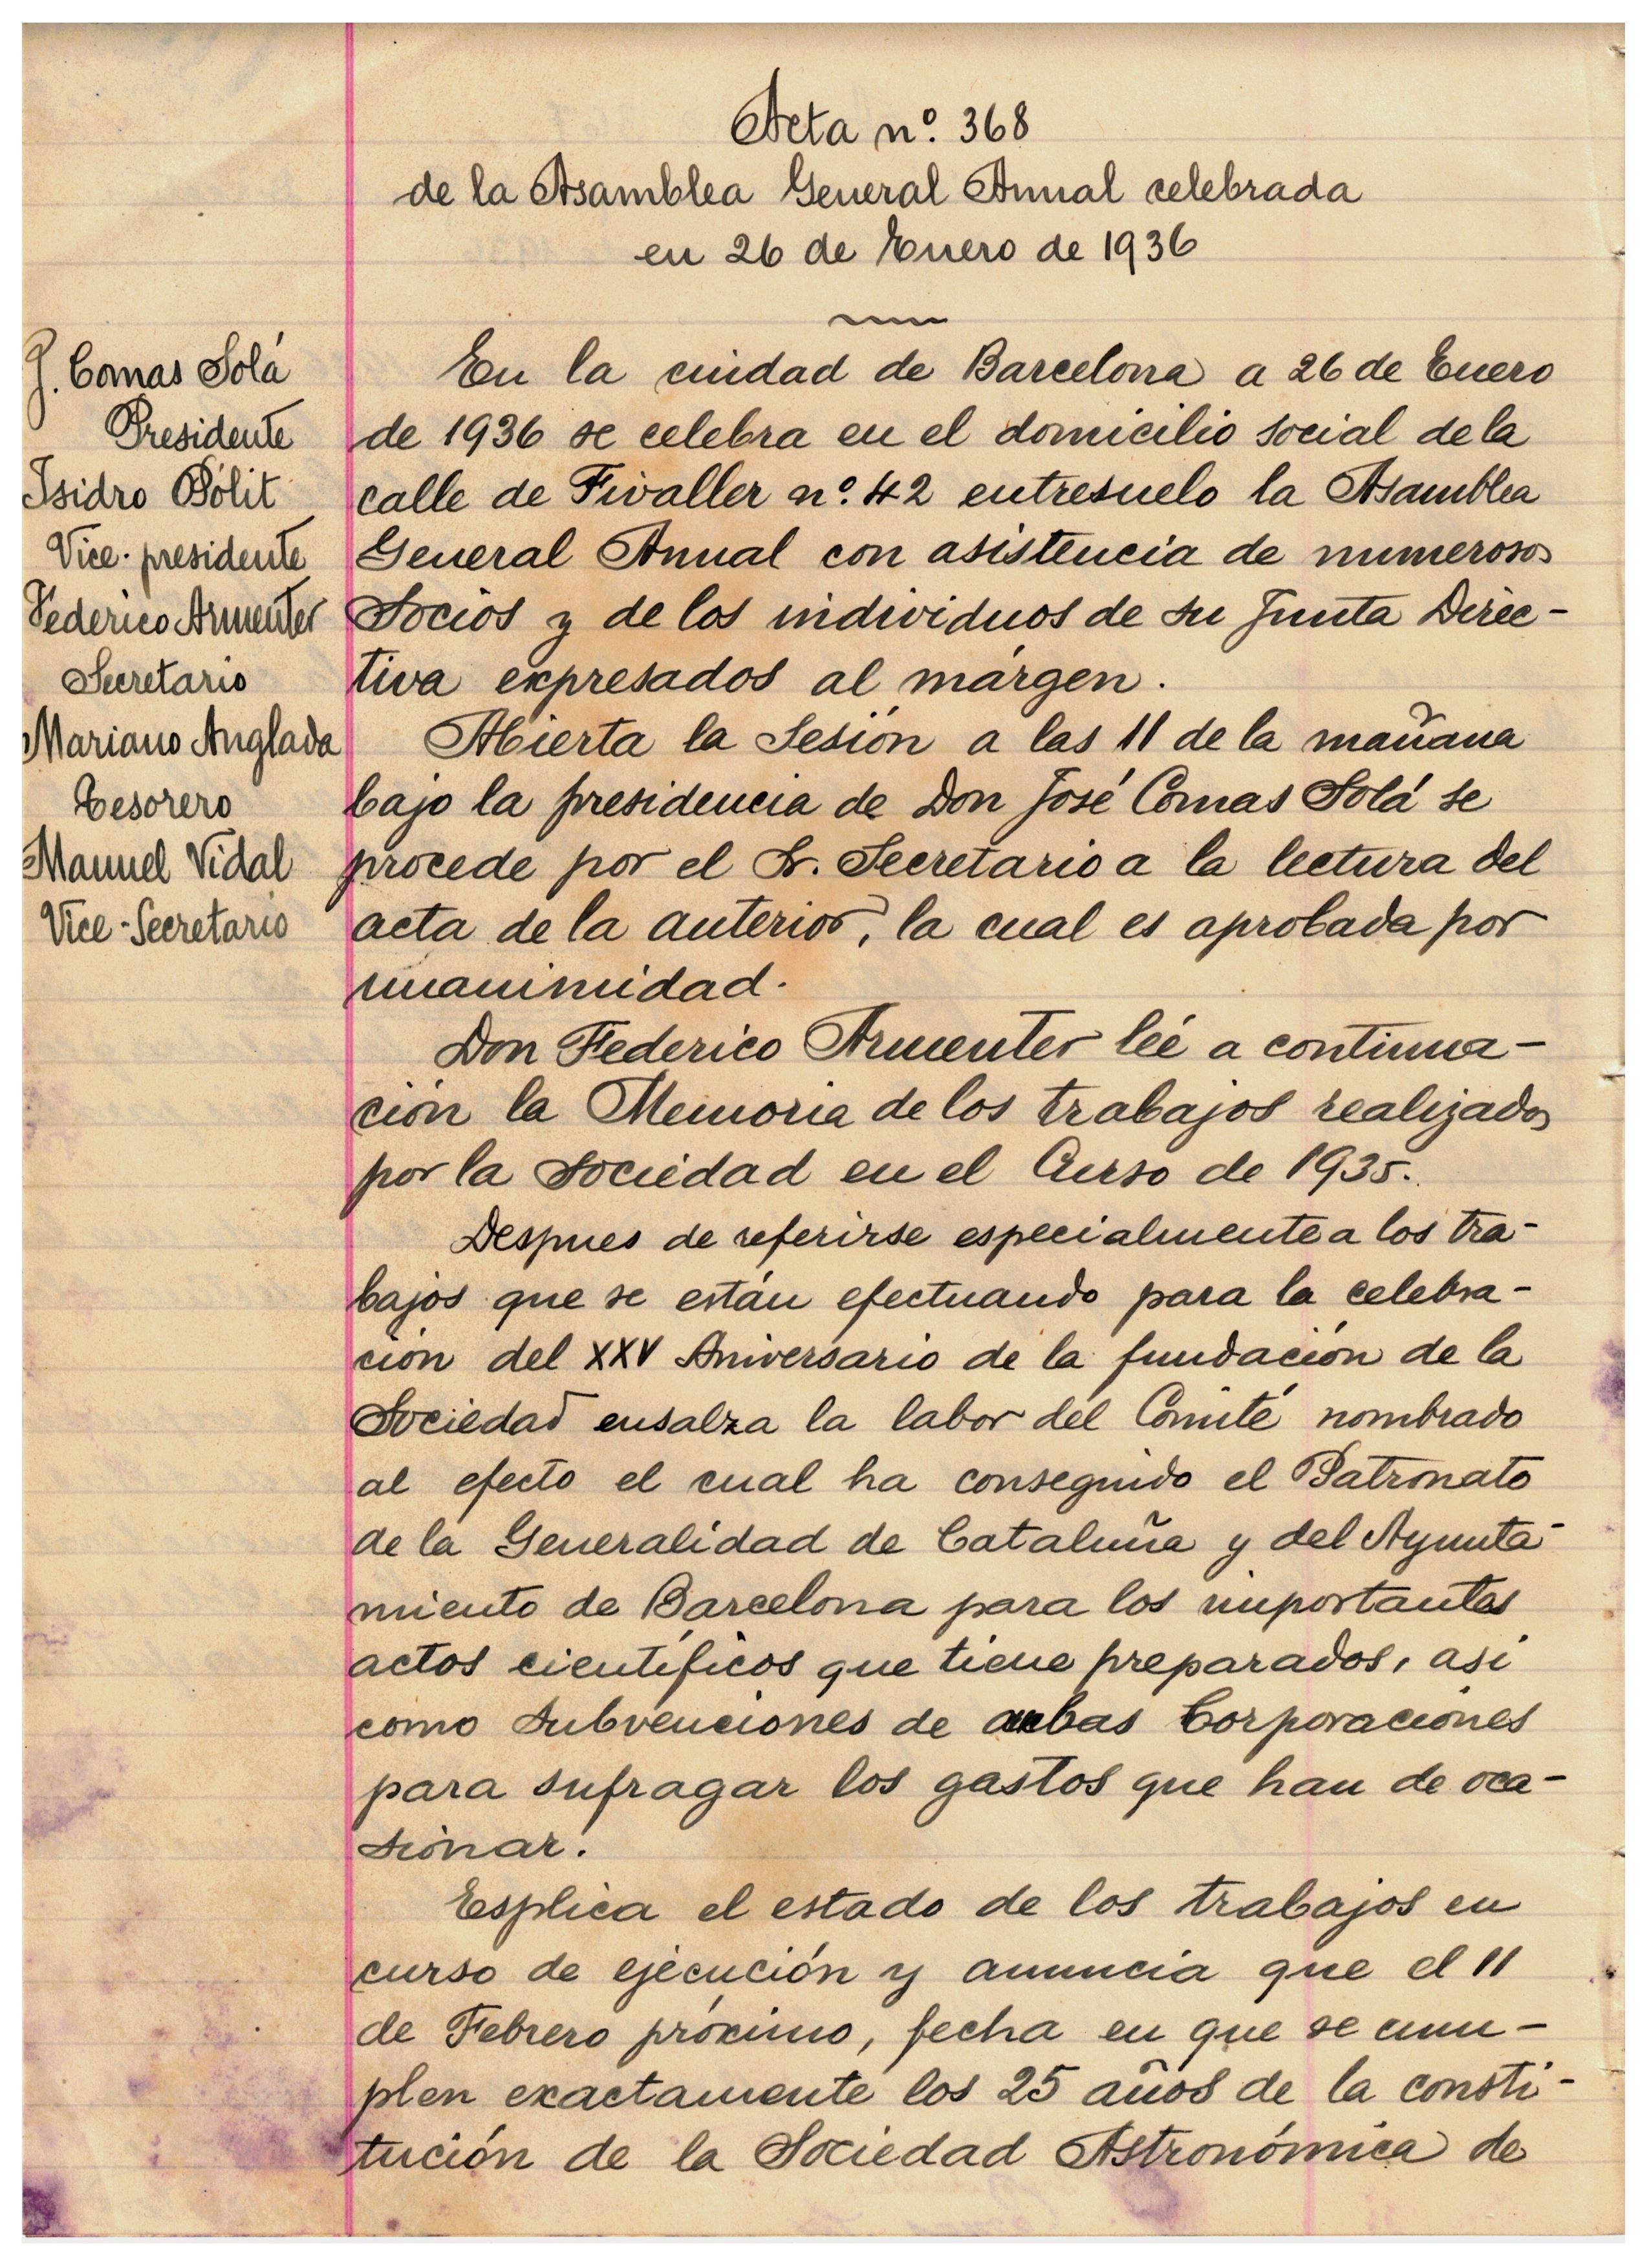 Acta nº. 368
de la Asamblea General Anual celebrada
en 26 de Enero de 1936
J. Comas Solá
Presidente
Isidro Pólit
Vice-presidente
Federico Armenter
Secretario
Mariano Anglada
Tesorero
Manuel Vidal
Vice-Secretario
En la ciudad de Barcelona a 26 de Enero
de 1936 se celebra en el domicilio social de la
calle de Fivaller nº. 42 entresuelo la Asamblea
General Anual con asistencia de numerosos
Socios y de los individuos de su Junta Direc-
tiva expresados al márgen.
Abierta la Sesión a las 11 de la mañana
bajo la presidencia de Don José Comas Solá se
procede por el Sr. Secretario a la lectura del
acta de la anterior, la cual es aprobada por
unanimidad.
Don Federico Armenter lée a continua-
ción la Memoria de los trabajos realizados
por la Sociedad en el Curso de 1935.
Despues de referirse especialmente a los tra-
bajos que se están efectuando para la celebra-
ción del XXV Aniversario de la fundación de la
Sociedad ensalza la labor del Comité nombrado
al efecto el cual ha conseguido el Patronato
de la Generalidad de Cataluña y del Ayunta-
miento de Barcelona para los importantes
actos científicos que tiene preparados, asi
como subvenciones de ambas Corporaciones
para sufragar los gastos que han de oca-
sionar.
Esplica el estado de los trabajos en
curso de ejecución y anuncia que el 11
de Febrero próximo, fecha en que se cum-
plen exactamente los 25 años de la consti-
tución de la Sociedad Astronómica de